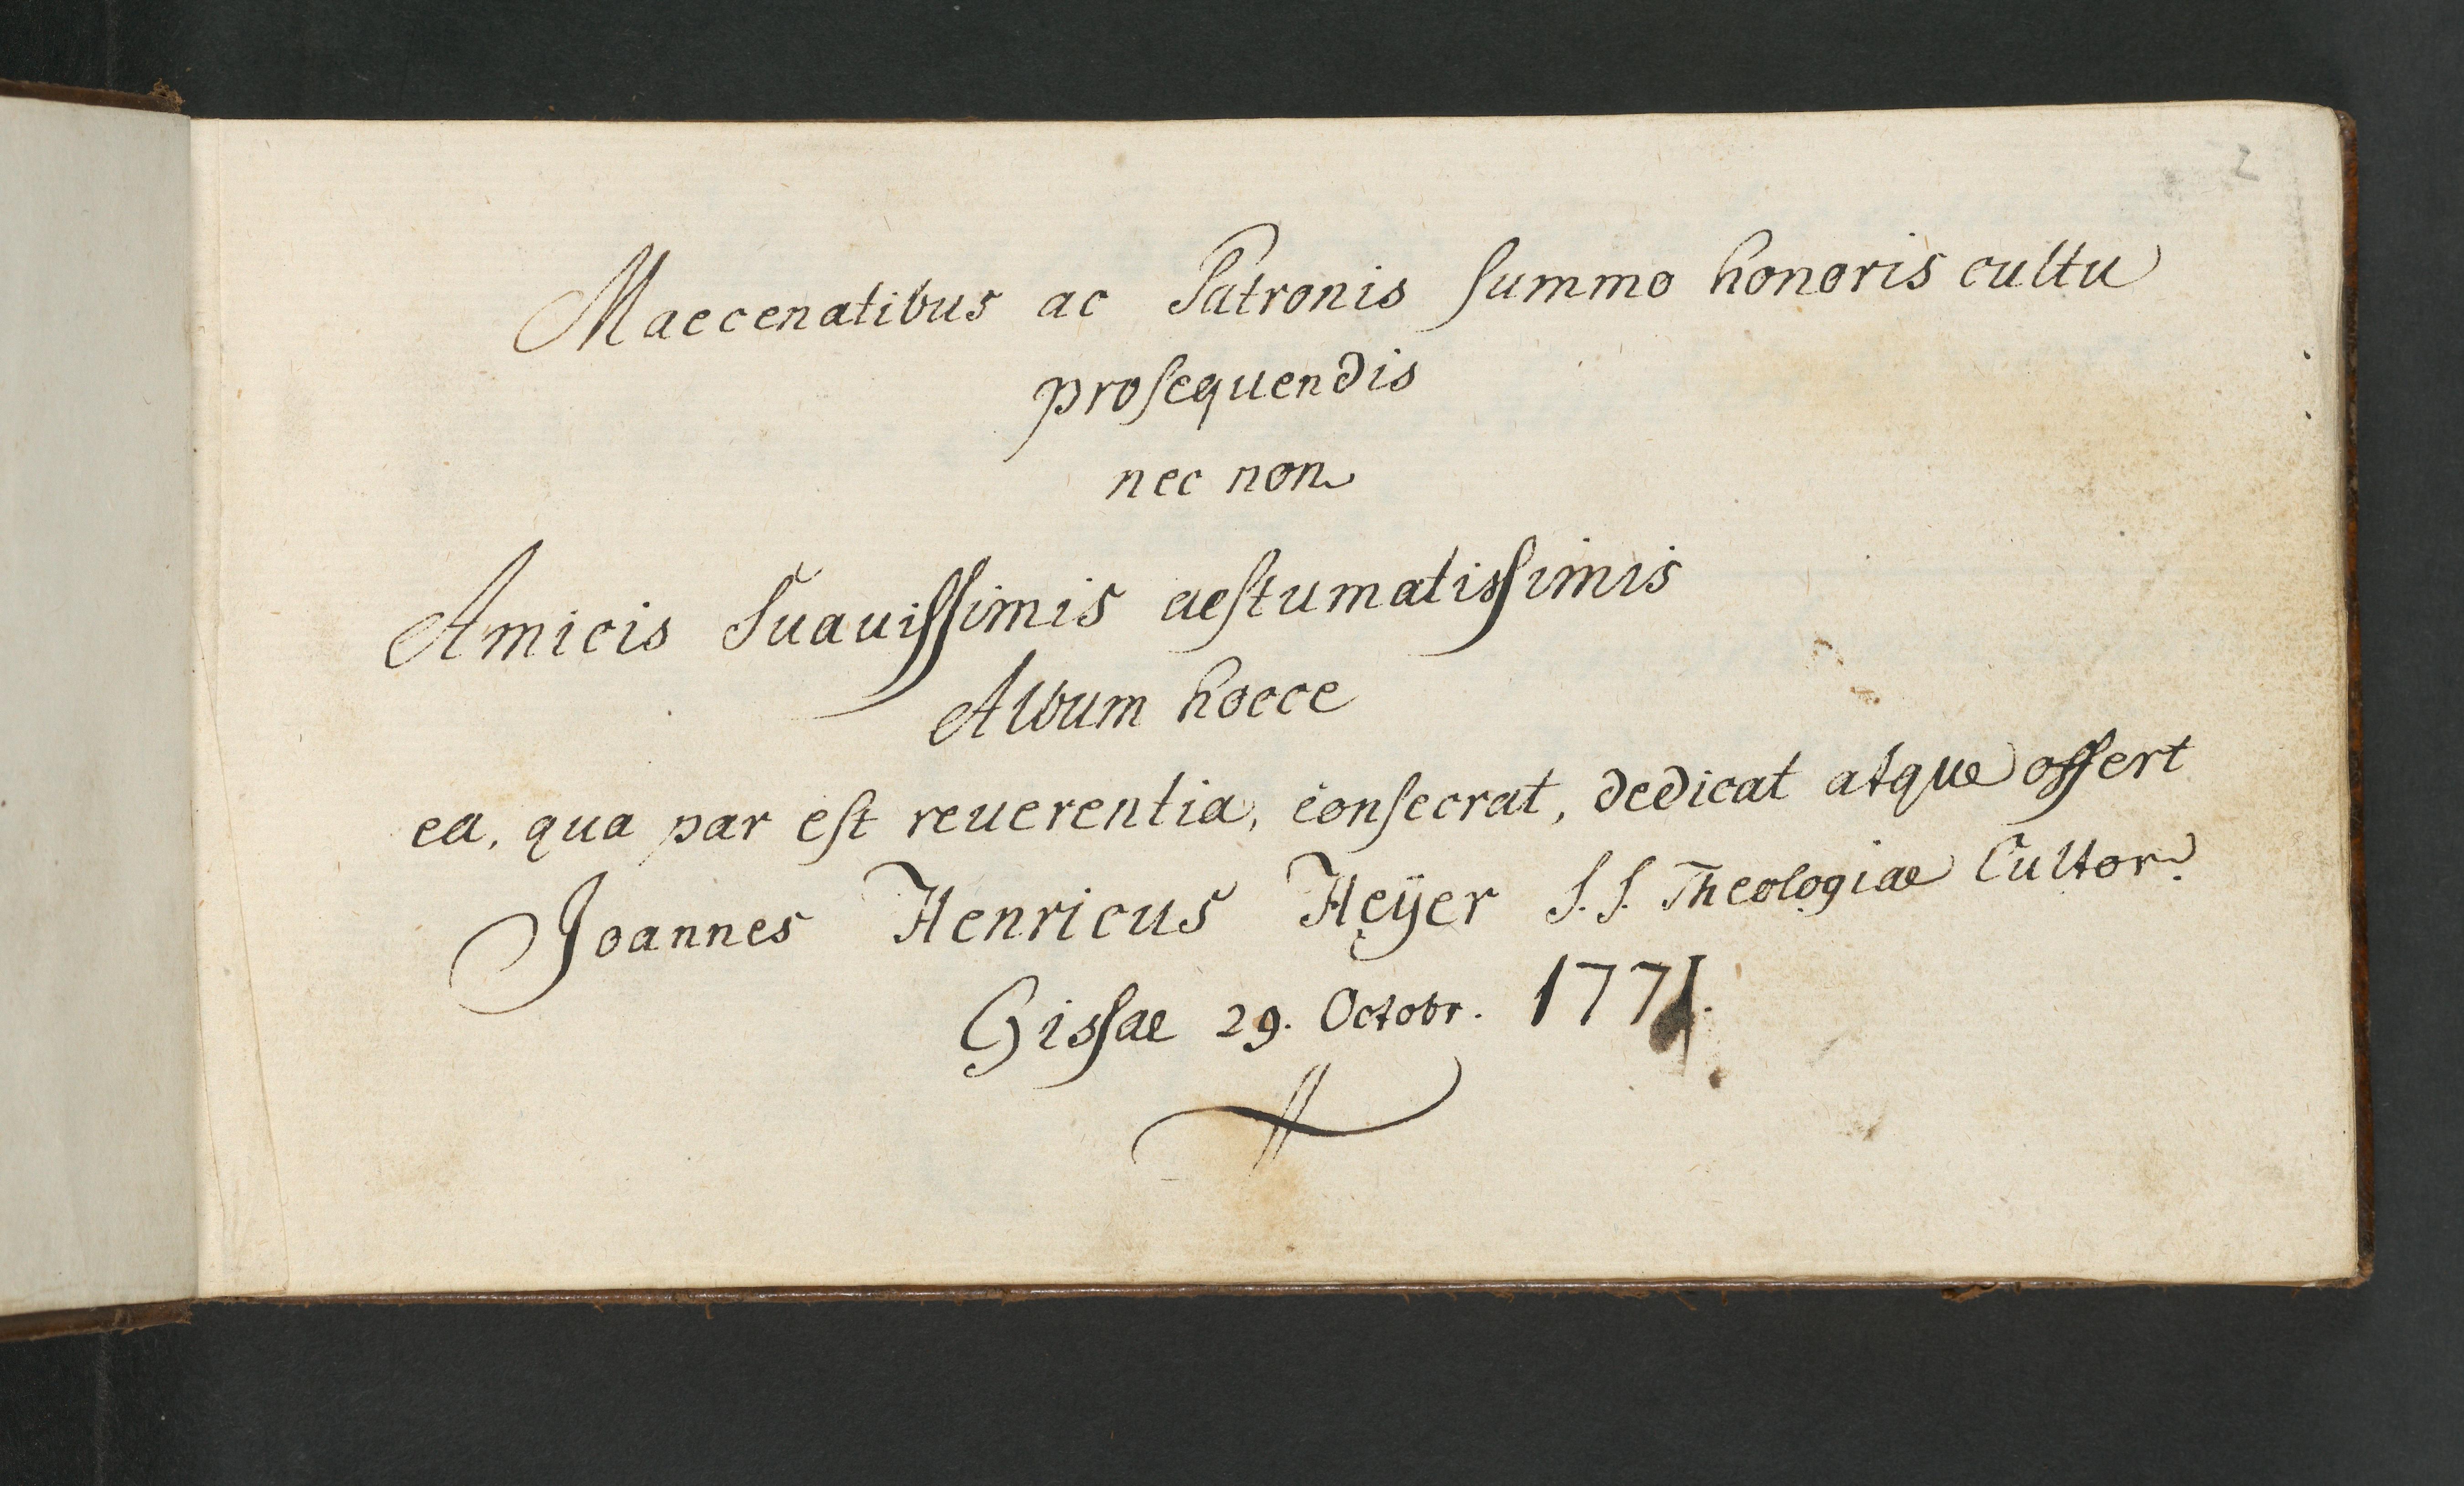 2
Maecenatibus ac Patronis ſummo honoris cultu
proſequendis
nec non
Amicis Suauiſſimis aeſtumatisſimis
Album hocce
ea, qua par eſt reuerentia, conſecrat, dedicat atque offert
Joannes Henricus Heÿer S. S. Theologiae Cultor.
Gisſae 29. Octobr. 1771.